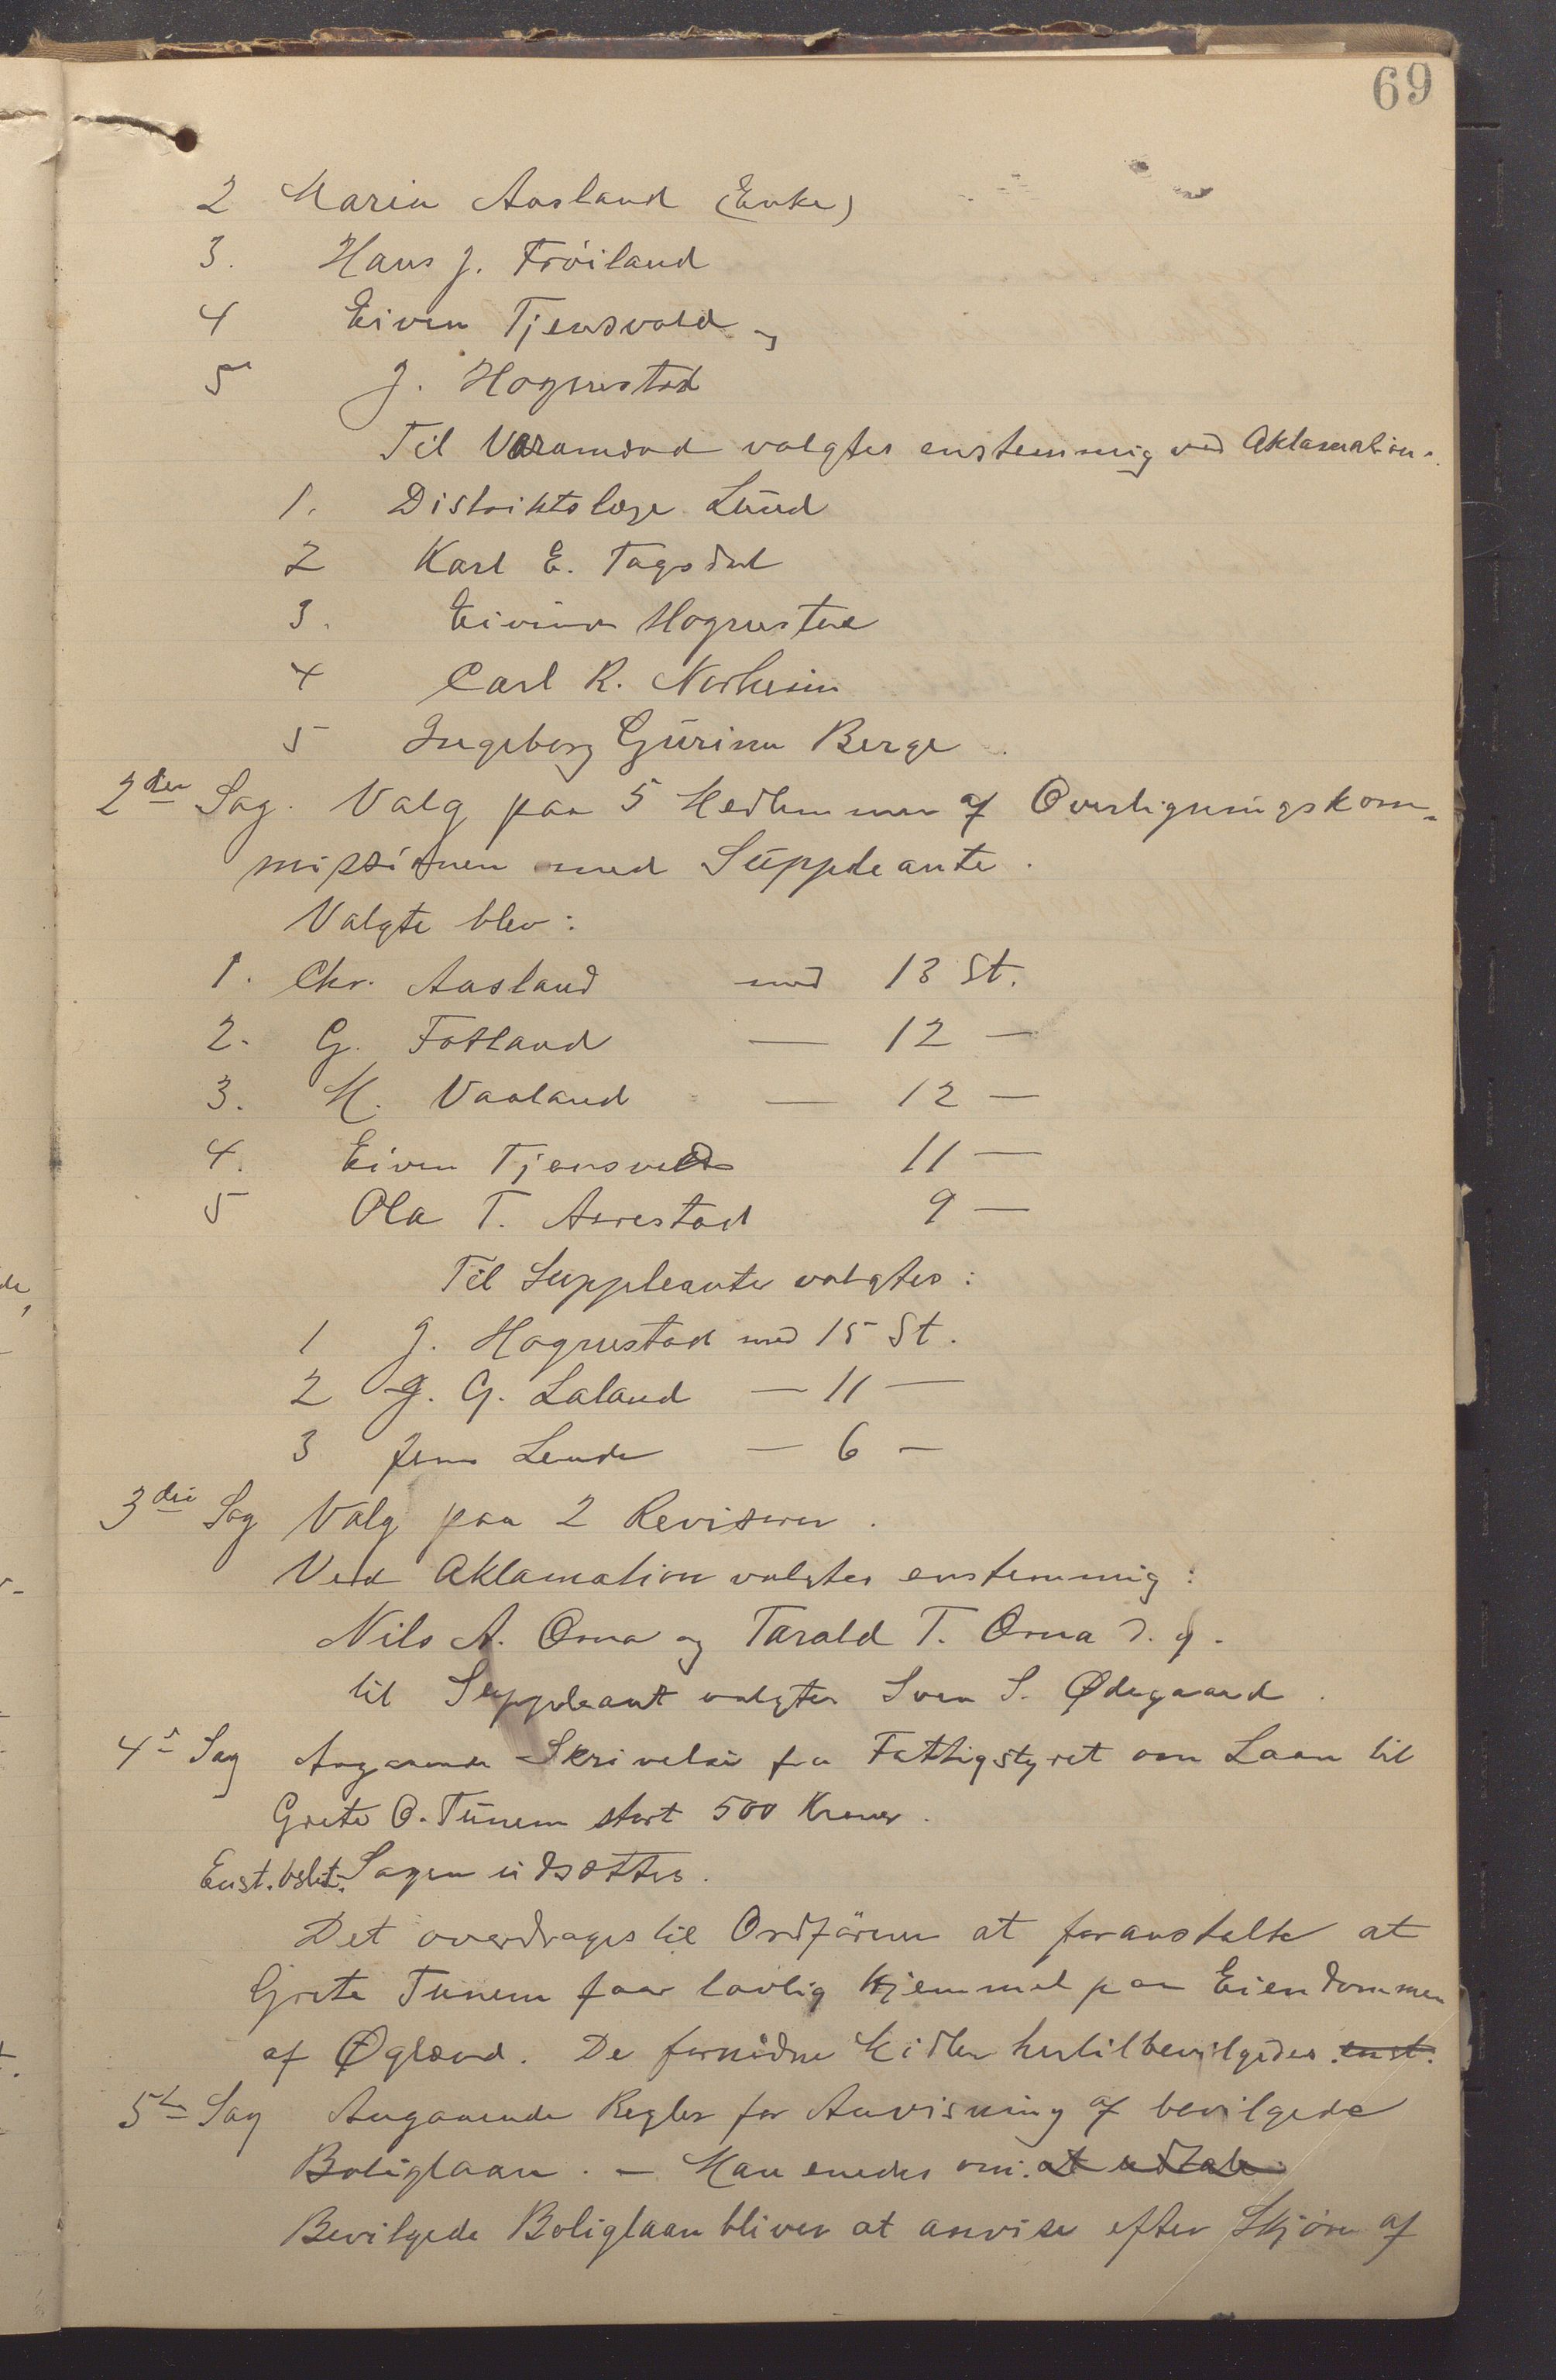 69
2 Maria Aasland (Enke)
3. Hans J. Frøiland
4 Eiven Tjensvold og
5 J. Hognestad
Til Varamænd valgtes enstemmig ved Aklamation.
1. Distriktslæge Lund
2 Karl E. Tagsdal
3. Eivind Hognestad
4 Carl R. Norheim
5 Ingeborg Gurine Berge
2den Sag. Valg paa 5 Medlemmer af Overligningskom-
missionen med Suppleante.
Valgte blev:
1. Chr. Aasland med 13 St.
2. G. Fotland — 12 —
3. M. Vaaland — 12 —
4. Eiven Tjensvold 11 —
5 Ola T. Aarestad 9 —
Til Suppleanter valgtes:
1 J. Hognestad med 15 St.
2 J. G. Laland — 11 —
3 Jens Lende — 6 —
3die Sag Valg paa 2 Revisorer.
Ved Aklamation valgtes enstemmig:
Nils A. Orna og Tarald T. Orna d. y.
til Suppleant valgtes Sven S. Ødegaard.
4de Sag Angaaende Skrivelse fra Fattigstyret om Laan til
Grete O. Tunem stort 500 Kroner.
Enst. beslut. Sagen udsættes.
Det overdrages til Ordføreren at foranstalte at
Grete Tunem faar lovlig Hjemmel paa Eiendommen
af Øglænd. De fornødne Midler hertil bevilgedes. enst.
5te Sag Angaaende Regler for Anvisning af bevilgede
Boliglaan. — Man enedes om: at udtale:
Bevilgede Boliglaan bliver at anvise efter Skjøn af